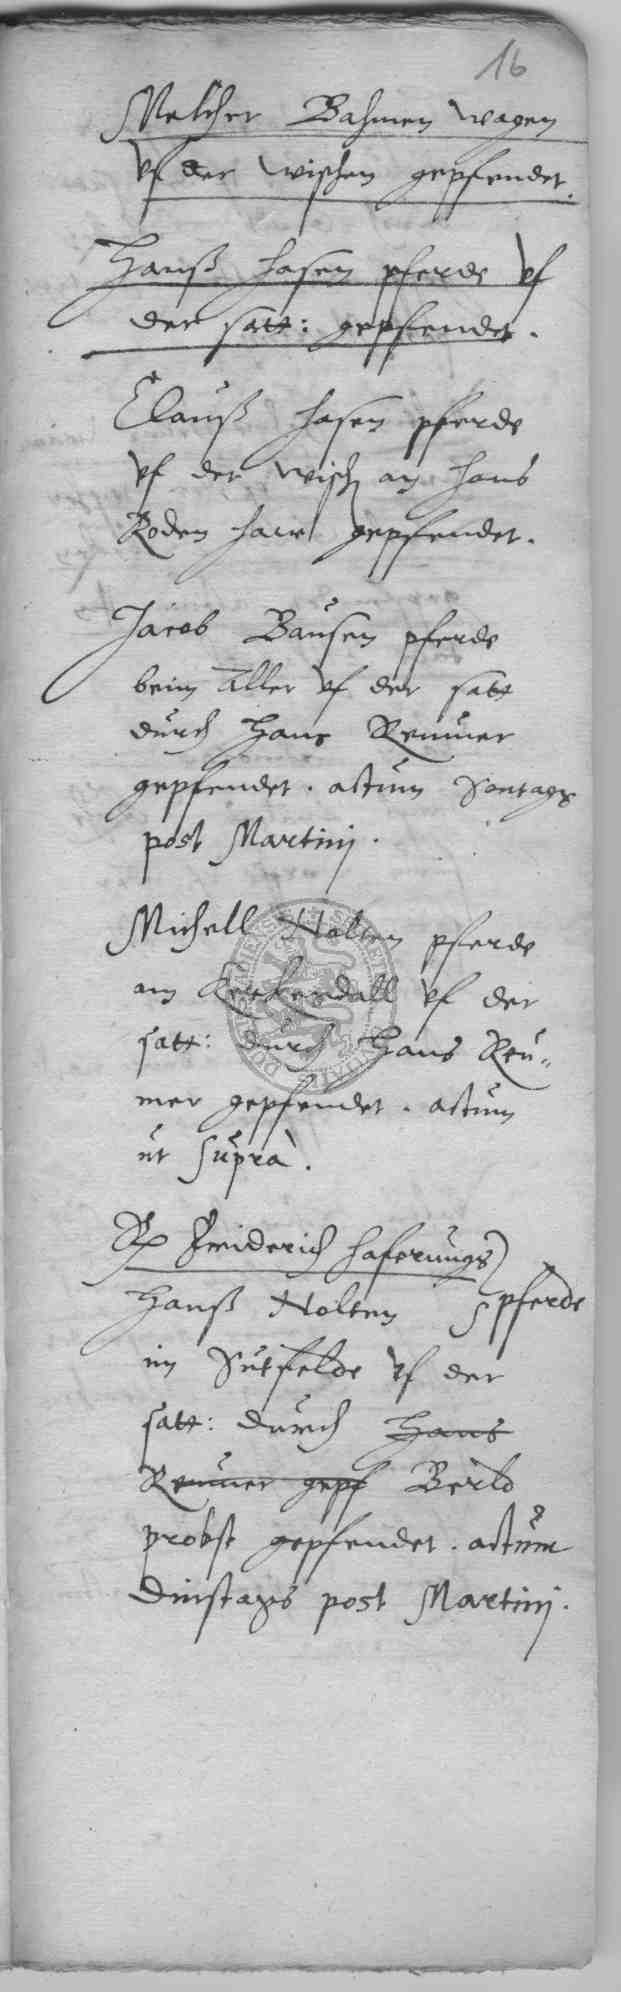 16
Melcher Bahmen wagen
vf der wischen gepfendet.
Hanß hasen pferde vf
der satt: gepfendet.
Clauß hasen pferde
vf der wisch an hans
Roden gepfendet.
Jacob Bausen pferde
beim Aller vf der satt
durch Hans Remmer
gepfendet. actum Sontags
post Martinj.
Michell Nolten pferde
am vf der
satt: durch Hans Reu-
mer gepfendet. actum
ut suprà.
Friderich haferungs
Hanß Nolten pferde
im Sutfelde vf der
satt: durch Hans
Reumer gepf Berld
probst gepfendet. actum
Dinstags post Martinj.